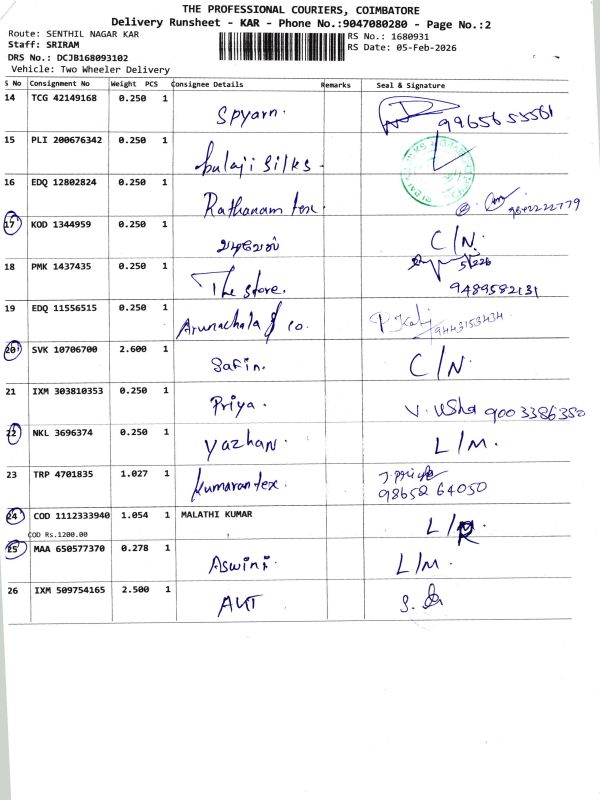 THE PROFESSIONAL COURIERS, COIMBATORE
Delivery Runsheet - KAR - Phone No.:9047080280 - Page No.:2
Route: SENTHIL NAGAR KAR
RS No.: 1680931
Staff: SRIRAM
RS Date: 05-Feb-2026
DRS No.: DCJB168093102
Vehicle: Two Wheeler Delivery
S No Consignment No Weight PCS Consignee Details Remarks Seal & Signature
14 TCG 42149168 0.250 1 Spyarn. 9965655561
15 PLI 200676342 0.250 1 balaji silks.
16 EDQ 12802824 0.250 1 Rathanam tex. 9842222779
17 KOD 1344959 0.250 1 வடிவேல் C/N.
18 PMK 1437435 0.250 1 The store. 5/2/26
9489582131
19 EDQ 11556515 0.250 1 Arunachala & co. 9443153434
20 SVK 10706700 2.600 1 Safin. C/N.
21 IXM 303810353 0.250 1 Priya. V. Usha 9003386380
22 NKL 3696374 0.250 1 Yazhan. L/M.
23 TRP 4701835 1.027 1 kumaran tex. 98652 64050
24 COD 1112333940 1.054 1 MALATHI KUMAR
COD Rs.1200.00
25 MAA 650577370 0.278 1 Aswini. L/M.
26 IXM 509754165 2.500 1 AKT